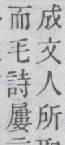 成文人所
而毛詩屢